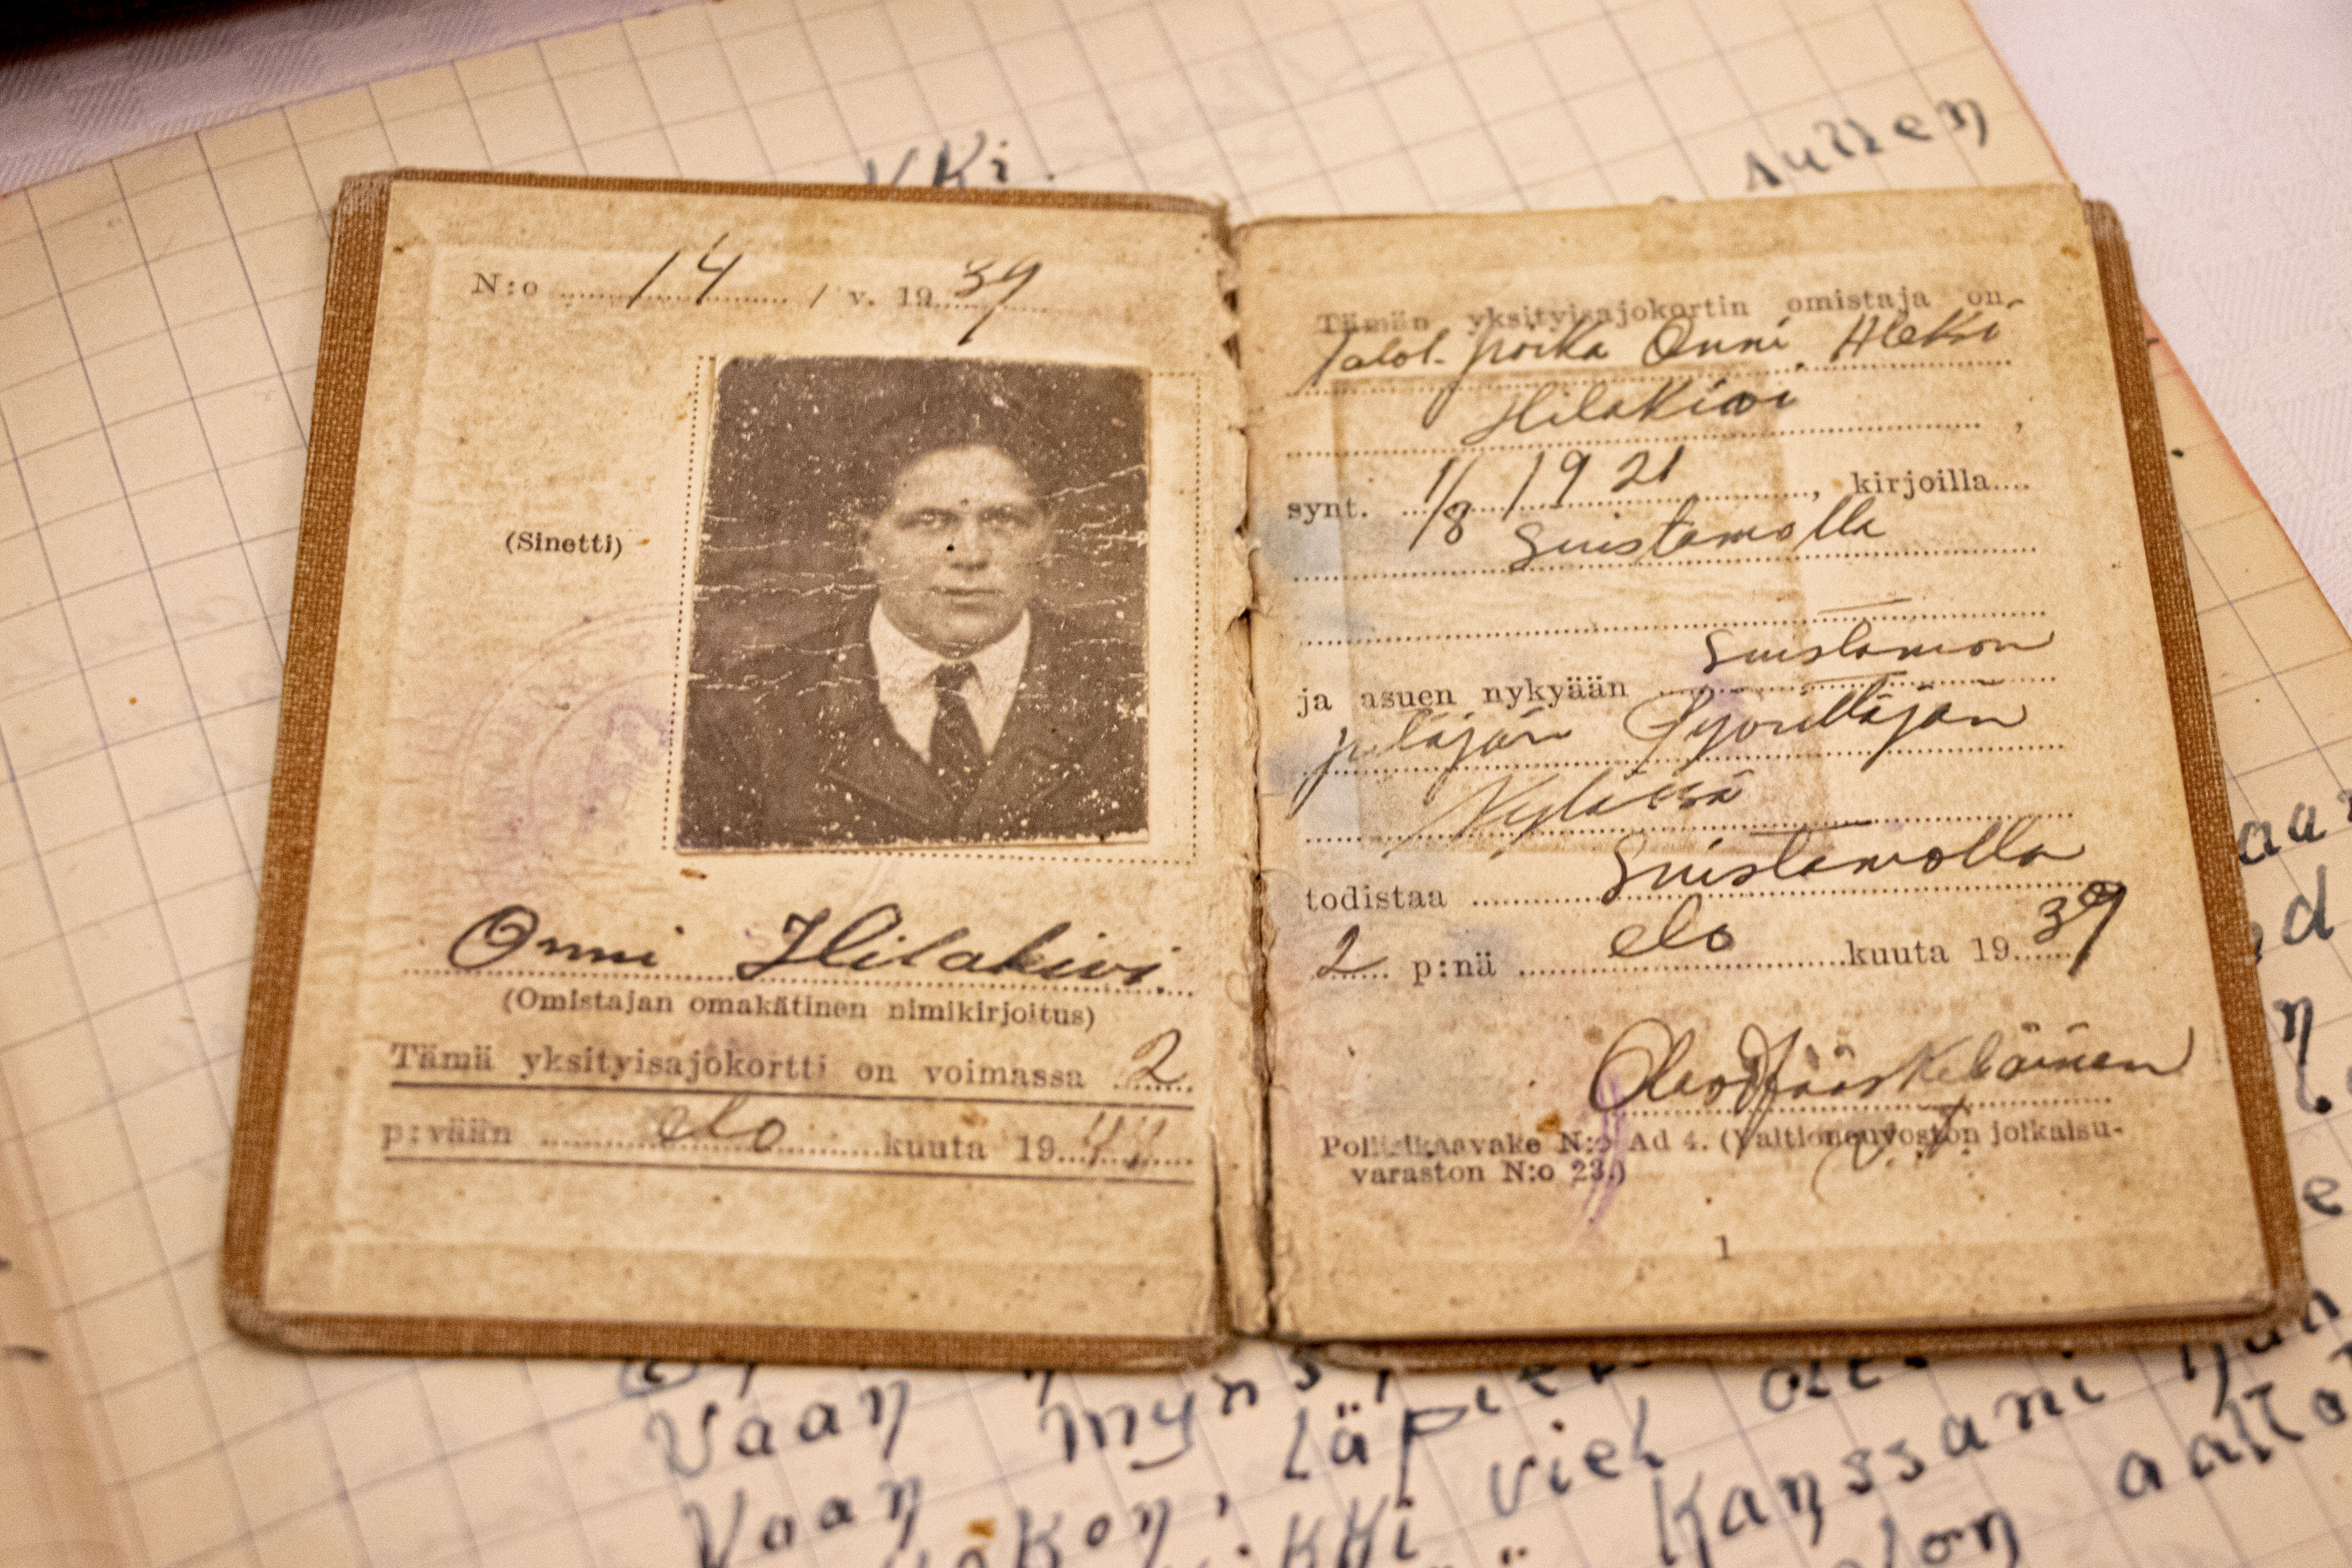 KKi.
Autten
N:o 14 / v. 1939
(Sinetti)
Onni Hilakivi.
(Omistajan omakätinen nimikirjoitus)
Tämä yksityisajokortti on voimassa 2
p:vään elo kuuta 1944
Tämän yksityisajokortin omistaja on
Talol. poika Onni Aleksi
Hilakivi ,
synt. 1/8 1921 , kirjoilla
Suistamolla
ja asuen nykyään Suistamon
pitäjän
Kylässä
todistaa Suistamolla
2 p:nä elo kuuta 1939
Jääskeläinen
Poliisikaavake N:o Ad 4. (Valtioneuvoston julkaisu-
varaston N:o 23.)
1
Vaan
Vaan viel Kanssani